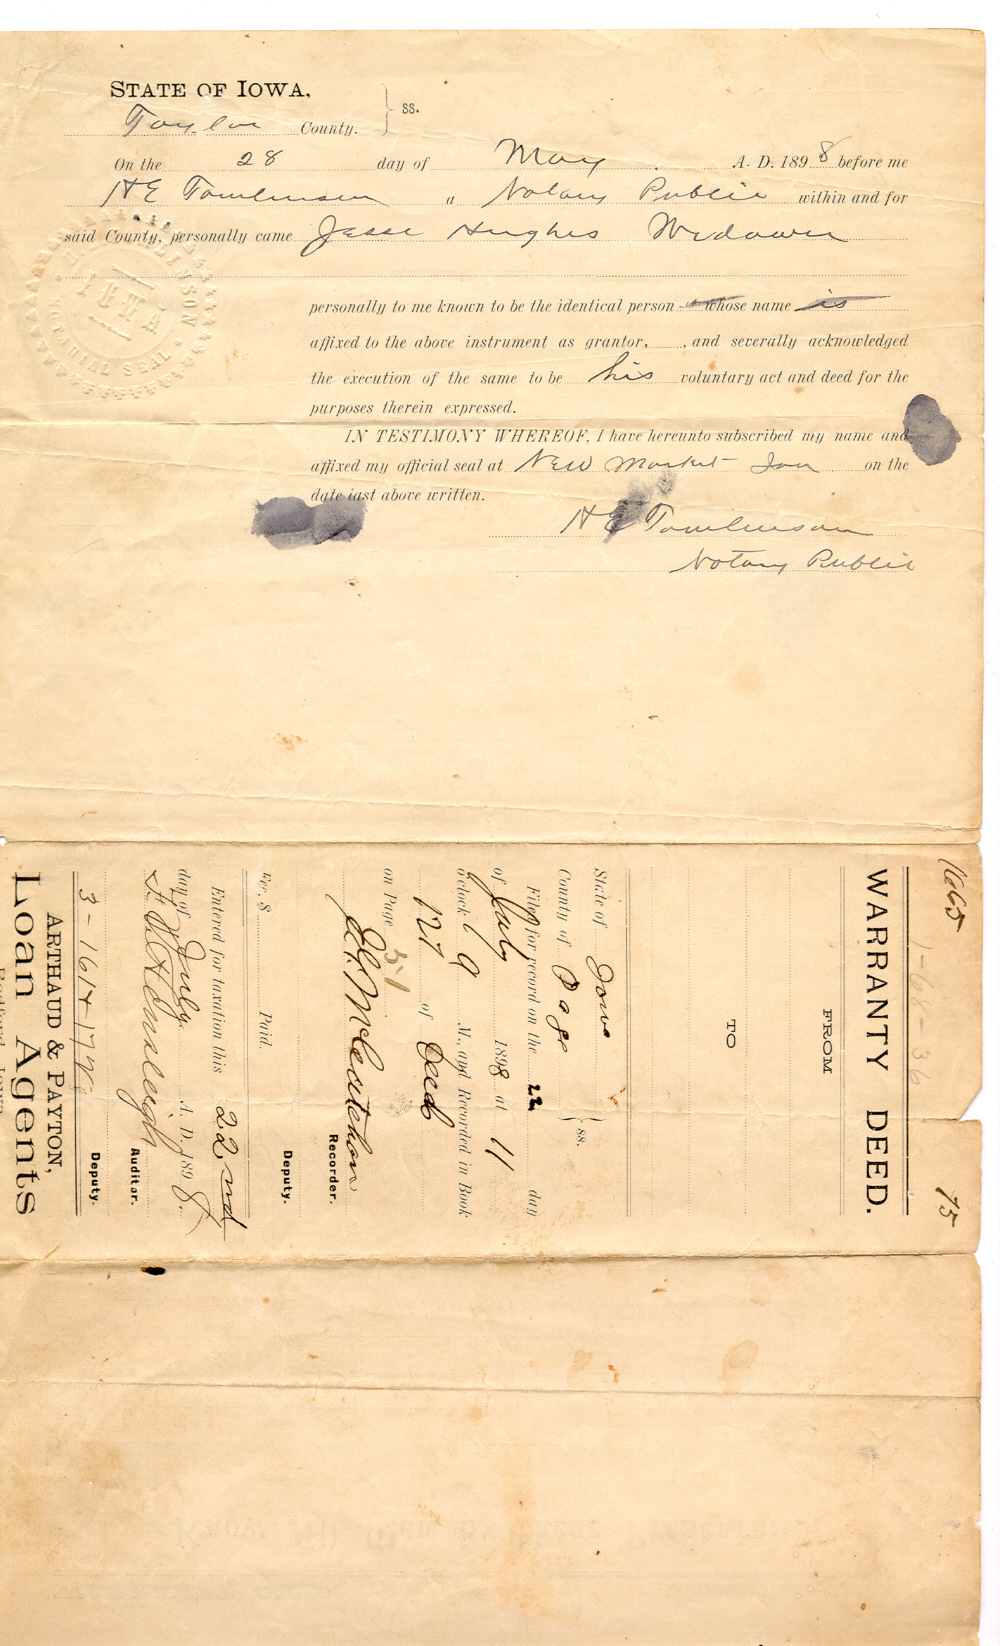 STATE OF IOWA,
Taylor County. } ss.
On the 28 day of May A. D. 1898 before me
H E Tomlinson a Notary Public within and for
said County, personally came Jesse Hughes Widower
personally to me known to be the identical person whose name is
affixed to the above instrument as grantor, , and severally acknowledged
the execution of the same to be his voluntary act and deed for the
purposes therein expressed.
IN TESTIMONY WHEREOF, I have hereunto subscribed my name and
affixed my official seal at New Market Iowa on the
date last above written.
H E Tomlinson
Notary Public
TOMLINSON
IOWA
NOTARIAL SEAL
1665 75
1-68-36
WARRANTY DEED.
FROM
TO
State of Iowa
County of Page } ss.
Filed for record on the 22 day
of July 1898 at 11
o'clock M., and Recorded in Book
127 of Deed
on Page 51
McCutchon
Recorder.
Deputy.
Fee, $ Paid.
Entered for taxation this 22nd
day of July A. D. 1898.
Auditor.
Deputy.
ARTHAUD & PAYTON,
Loan Agents
Bedford, Iowa